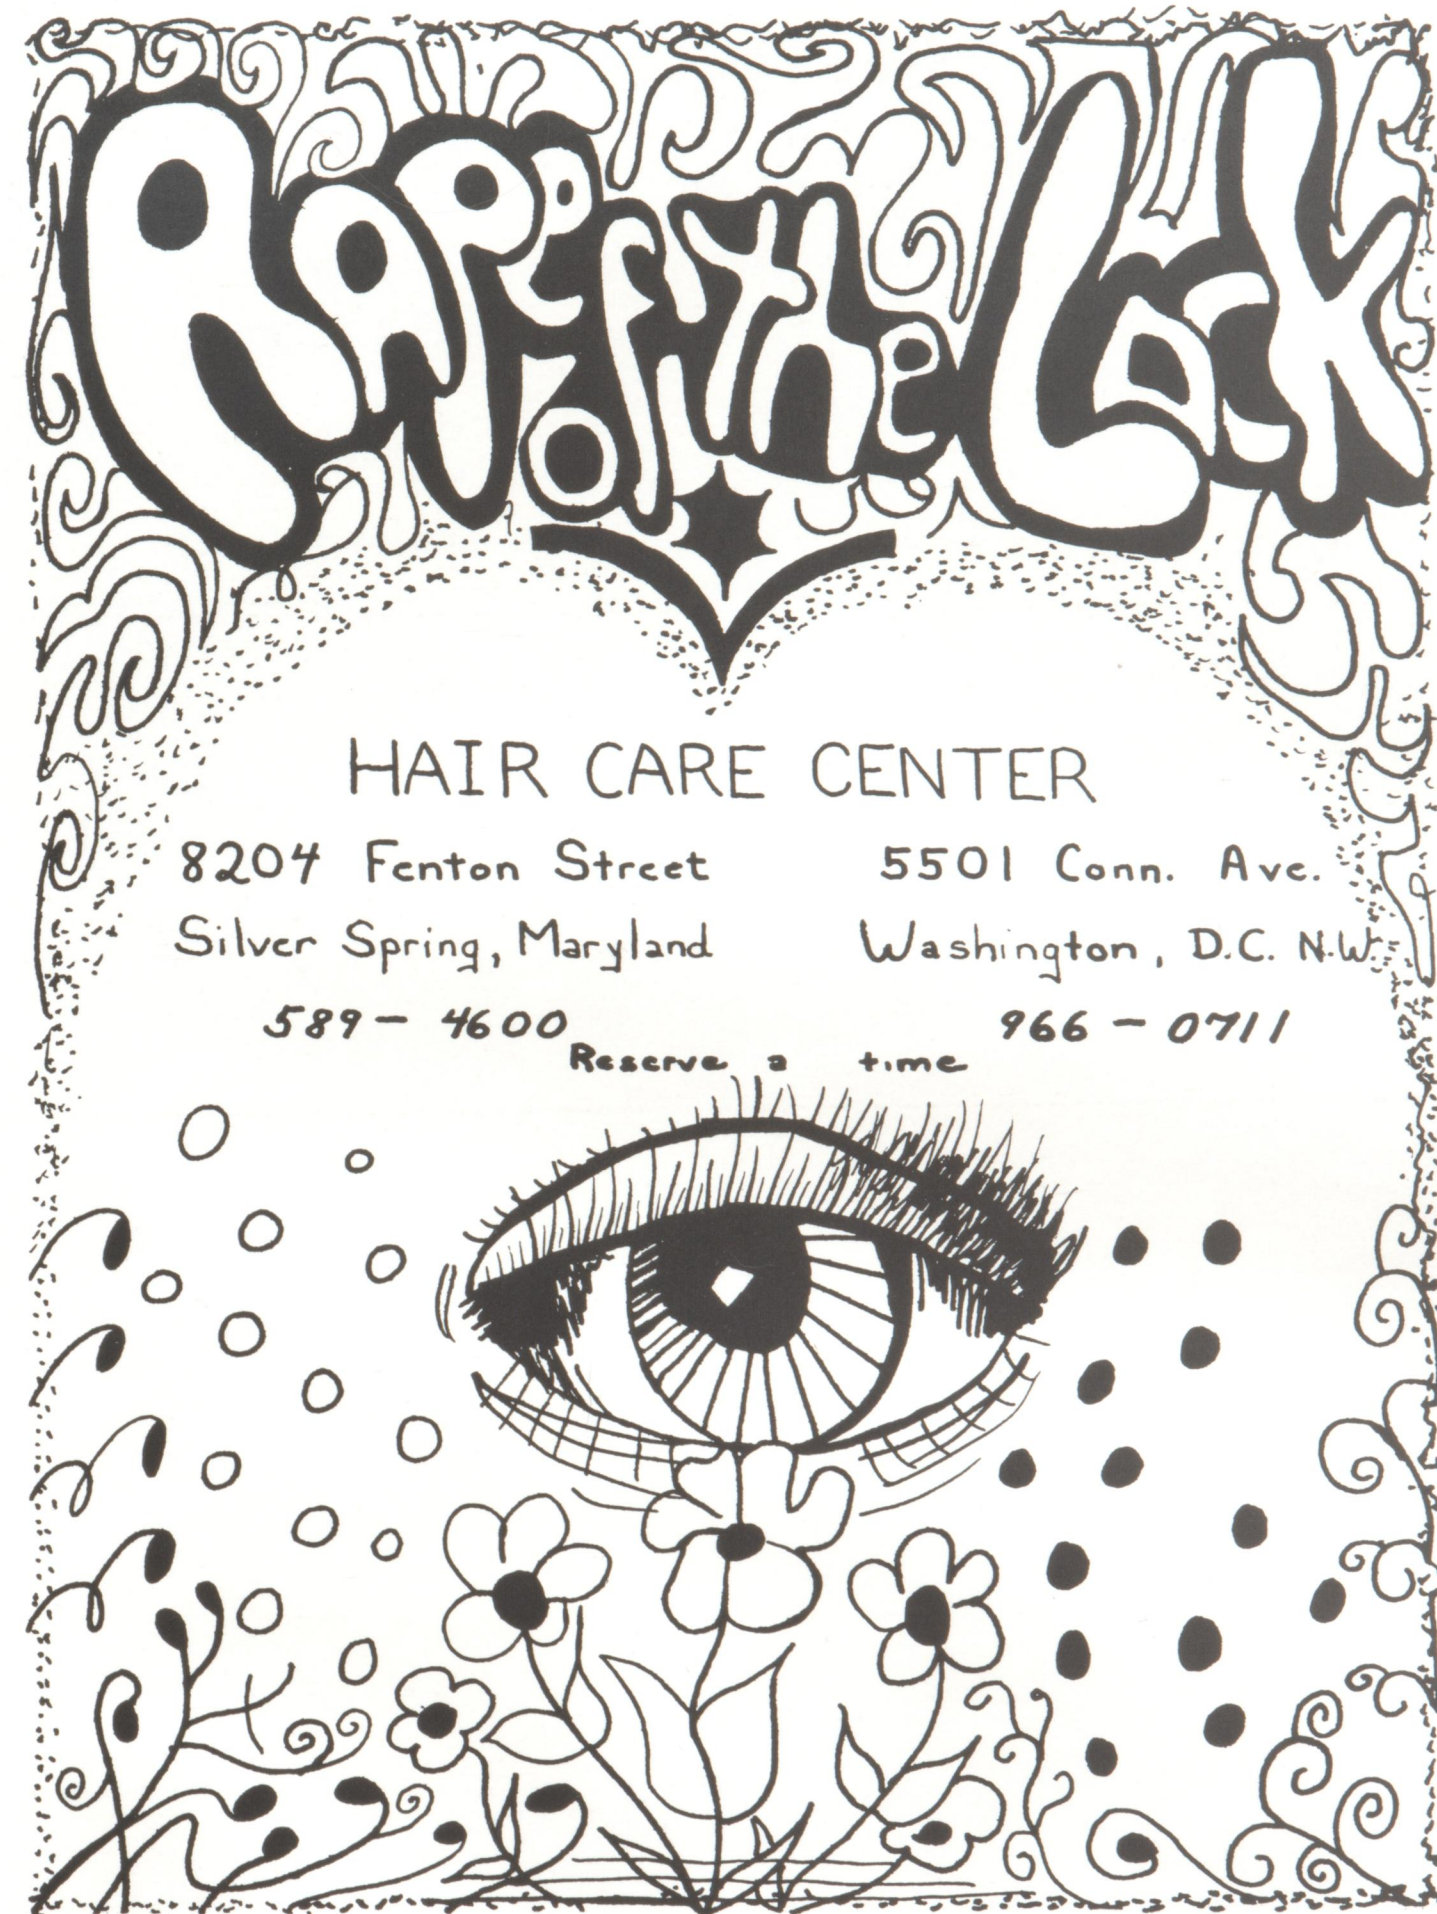 Rape of the Lock
HAIR CARE CENTER
8204 Fenton Street
Silver Spring, Maryland
589 - 4600
5501 Conn. Ave.
Washington, D.C. N.W.
966 - 0711
Reserve a time